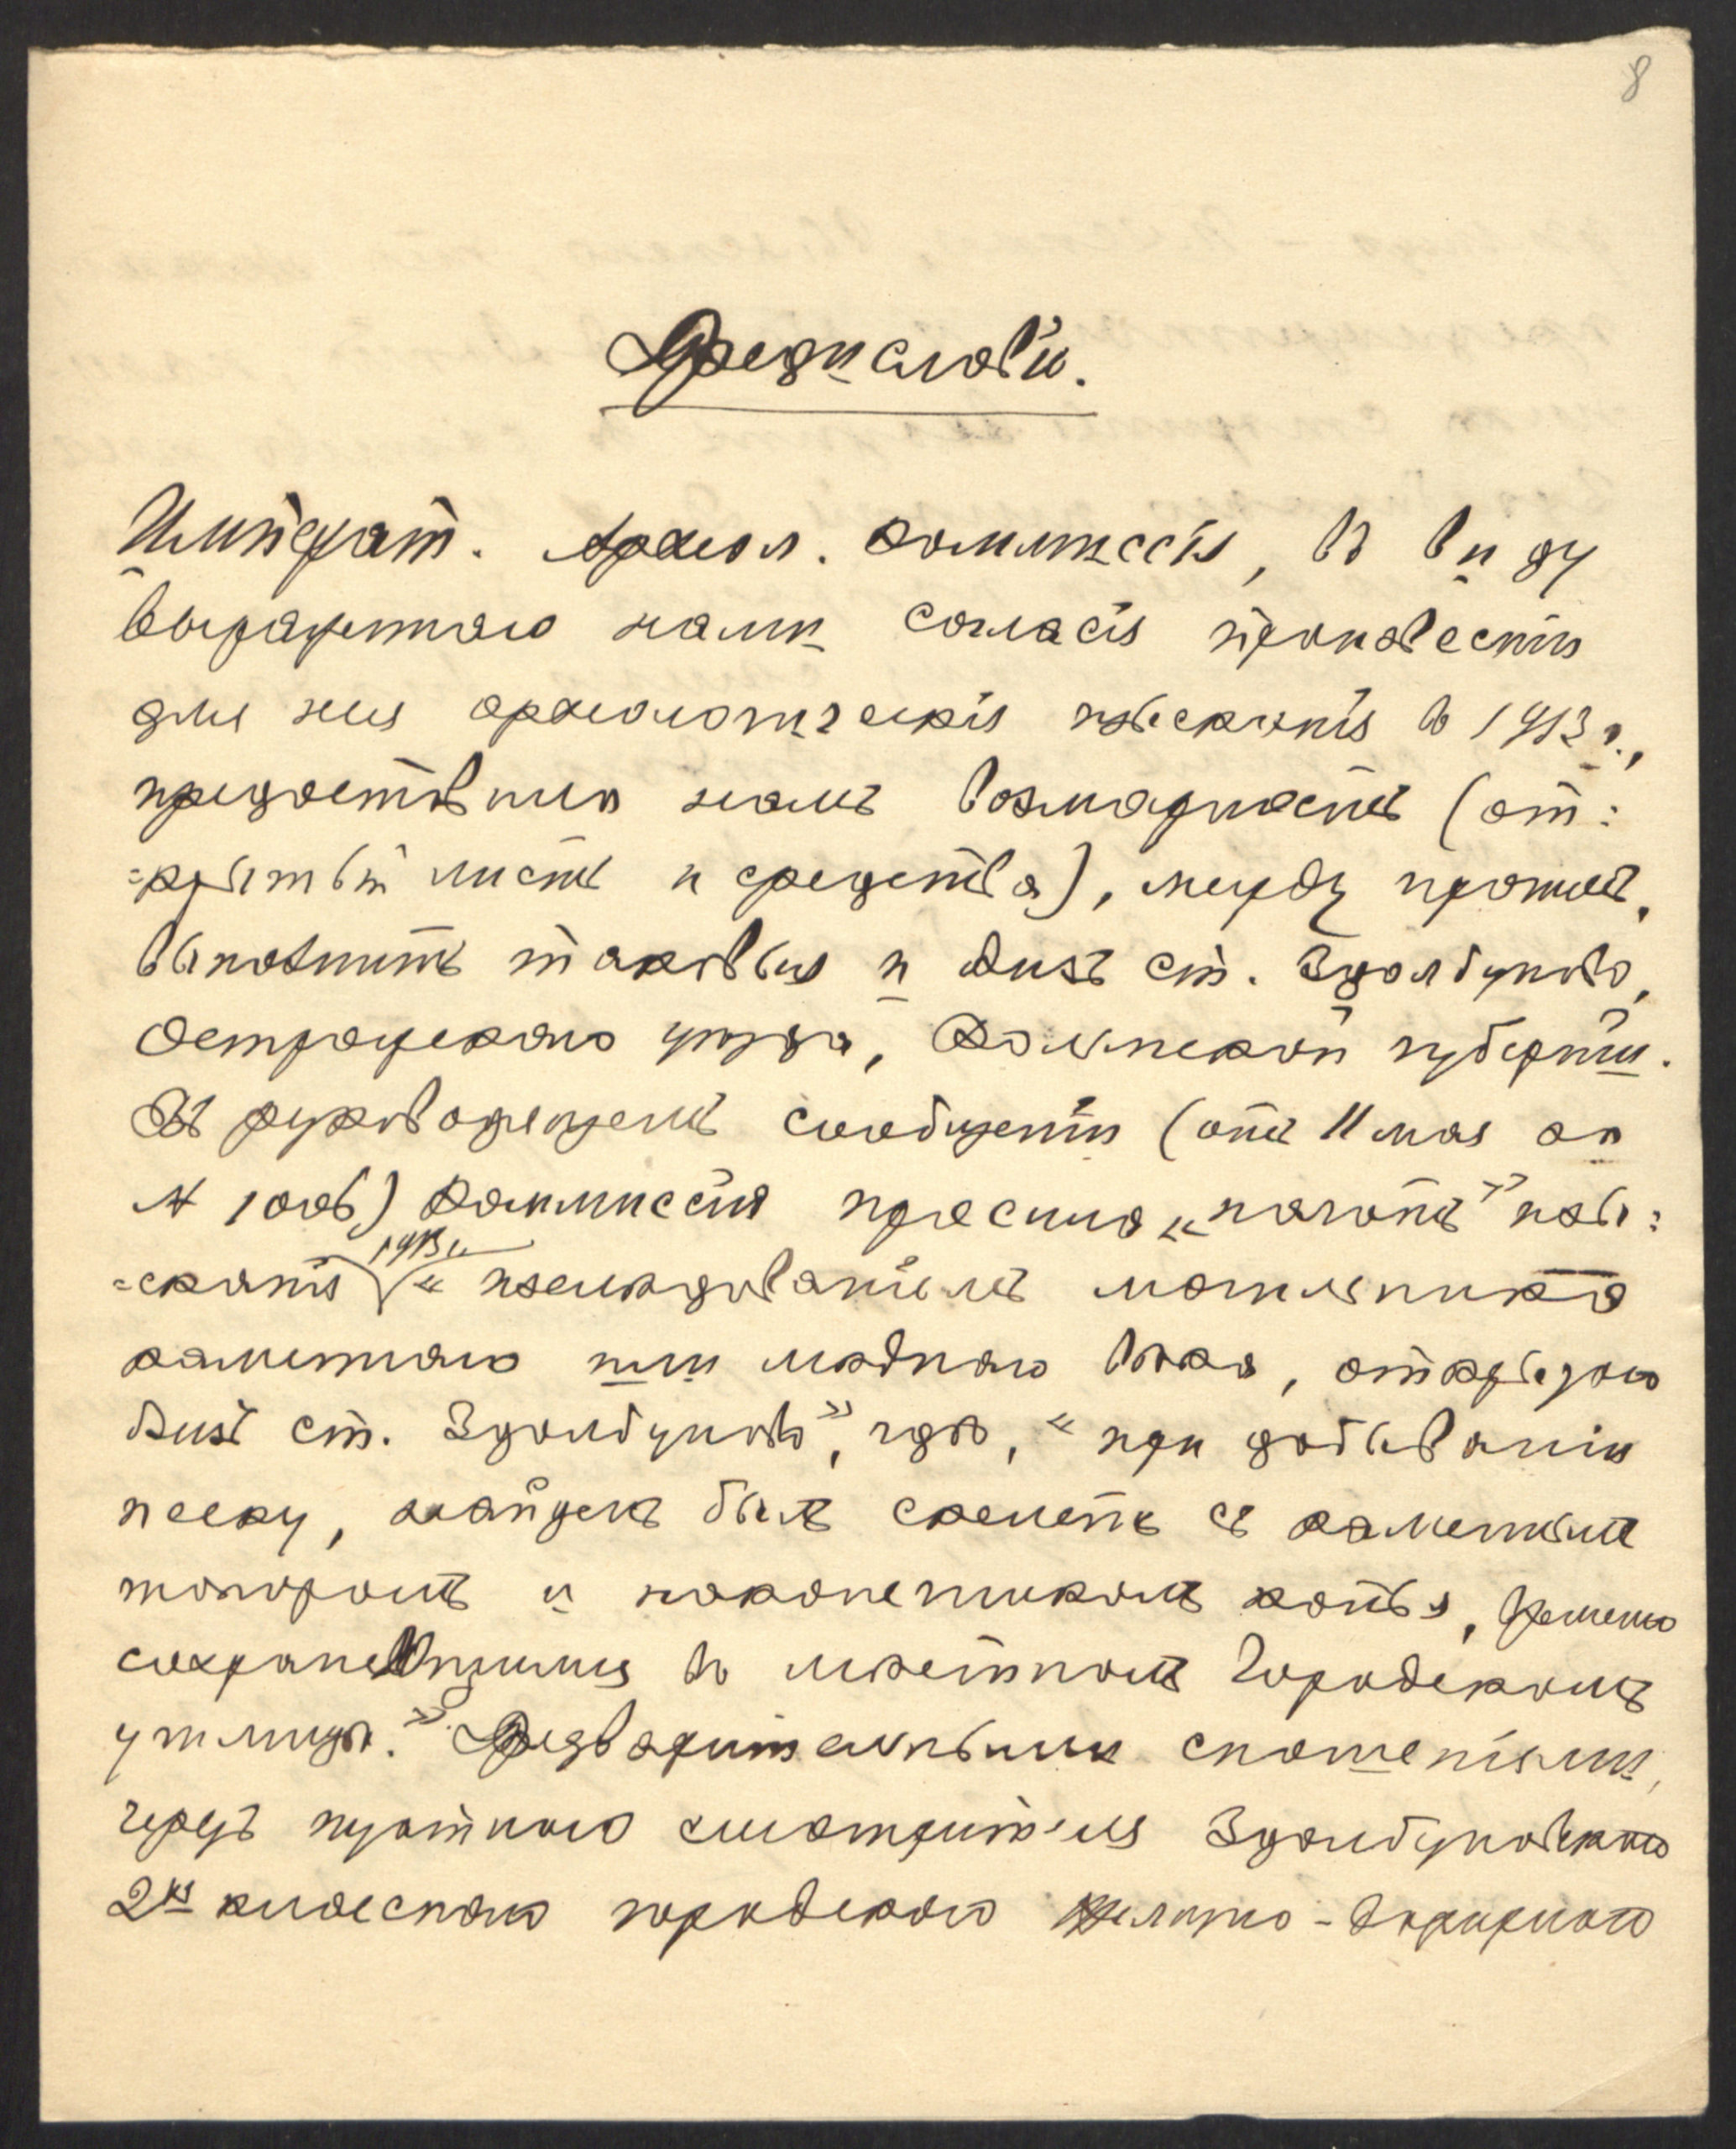 8
Предисловіе.
Императ. Археол. Коммиссія, въ виду
выраженнаго нами согласія произвести
для нея археологическія изысканія въ 1913 г.,
предоставила намъ возможность (от=
=крытый листъ и средства), между прочимъ,
выполнить таковыя и близъ ст. Здолбуново,
Острожскаго уѣзда, Волынской губерніи.
Въ руководящемъ сообщеніи (отъ 11 мая за
№ 1006) Коммиссія просила „начать" изы=
=сканія 1913 г. „изслѣдованіемъ могильника
каменнаго или мѣднаго вѣка, открытаго
близъ ст. Здолбуново", гдѣ, „при добываніи
песку, найденъ былъ скелетъ съ каменнымъ
топоромъ и наконечникомъ копья, временно
сохраняющимися въ мѣстномъ Городскомъ
училищѣ." Предварительными сношеніями,
черезъ почтоваго смотрителя Здолбуновскаго
2хъ класснаго городского желѣзно-дорожнаго